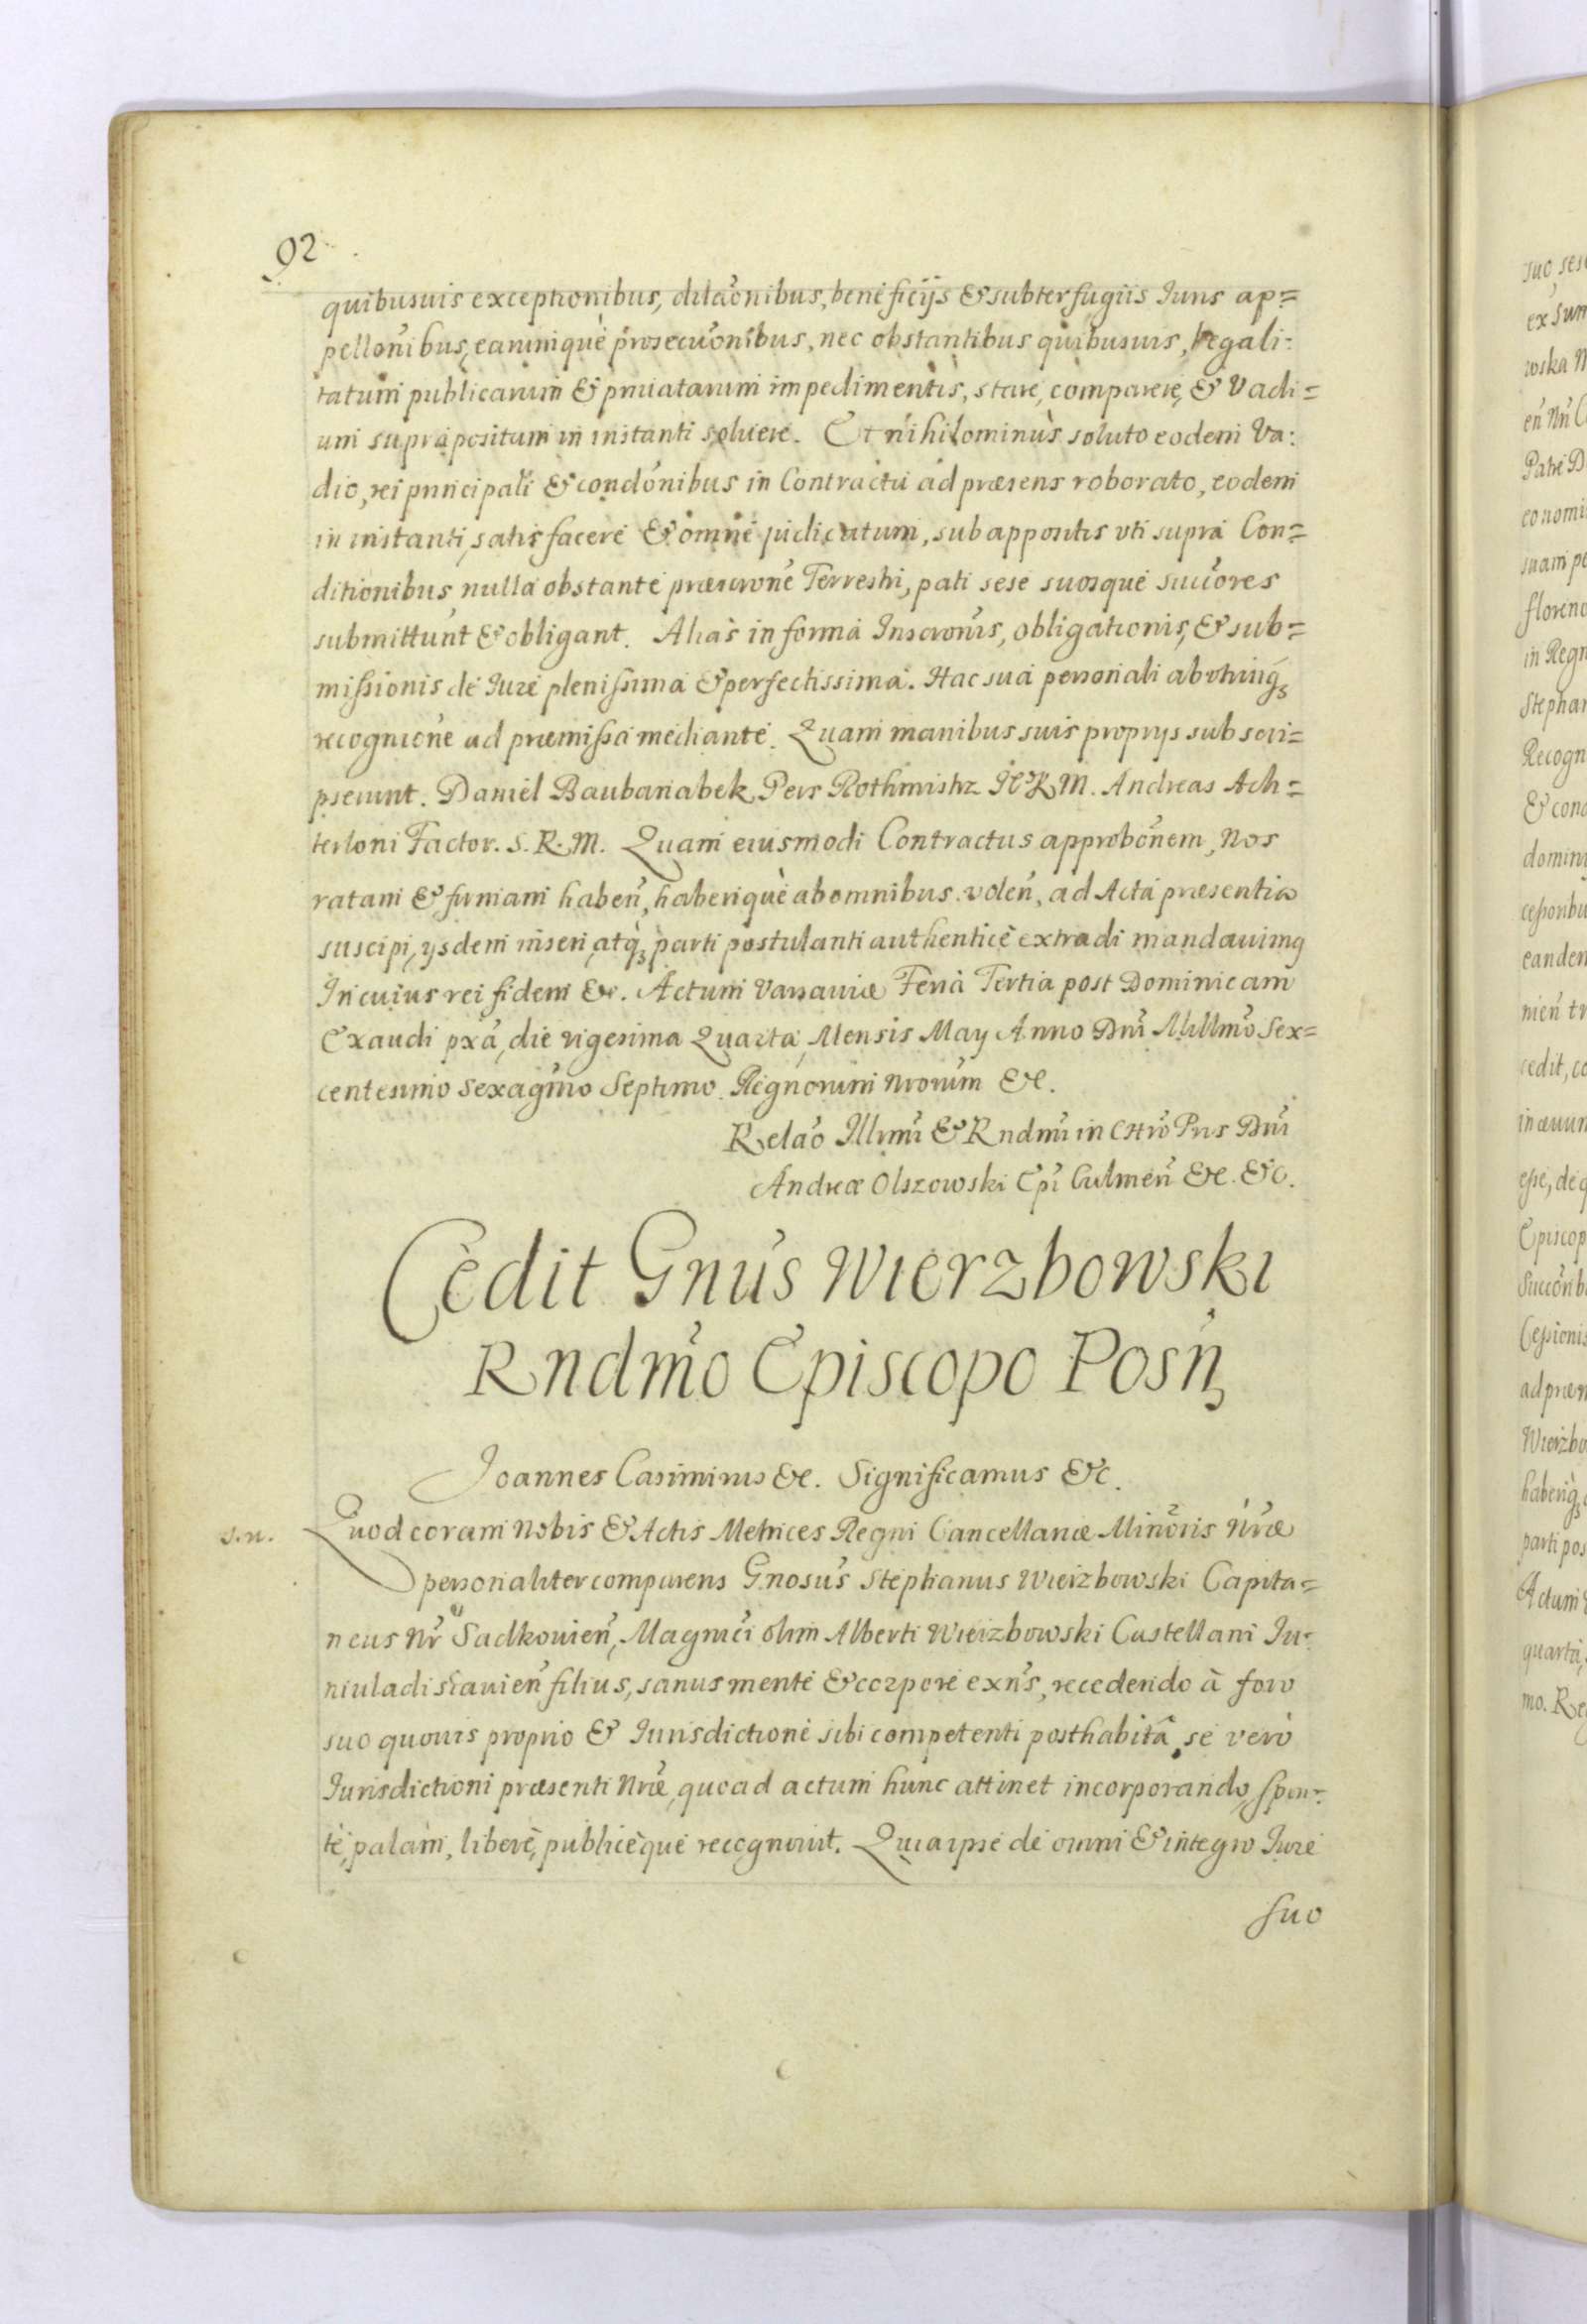 92
quibusuis exceptionibus, dilaõnibus, beneficijs & subterfugiis Iuris ap=
pellõnibus, earumque prosecuõnibus, nec obstantibus quibusuis, legali:
tatum publicarum & priuatarum impedimentis, stare, comparere, & Vadi=
um supra positum in instanti soluere. Et nihilominùs soluto eodem Va:
dio, rei principali & condõnibus in Contractu ad præsens roborato, eodem
in instanti, satisfacere & omne iudicatum, sub appositis vti supra Con=
ditionibus nulla obstante præscrone Terrestri, pati sese suosque succores
submittunt & obligant. Aliàs in forma Inscronis, obligationis, & sub=
missionis de Iure plenissima & perfectissima. Hac sua personali ab vtrinq3
recognicone ad præmissa mediante. Quam manibus suis proprys subscri=
pserunt. Daniel Baubanabek Pers Rothmistrz J K M. Andreas Ach=
terloni Factor. S. R. M. Quam eiusmodi Contractus approbõnem, Nos
ratam & firmam haben̄, haberique ab omnibus volen̄, ad Acta præsentia
suscipi, ysdem inseri, atq3 parti postulanti authenticè extradi mandauimq
In cuius rei fidem &c. Actum Varsauiæ Feria Tertia post Dominicam
Exaudi pxã, die vigesima Quarta, Mensis May Anno Dnĩ Millmõ Sex=
centesimo Sexagmõ Septimo. Regnorum Nrorum &c.
Relaõ Illrmĩ & Rndmĩ in Chrõ Pris Dnĩ
Andreæ Olszowski Epĩ Culmen̄ &c. &c.
Cèdit Gnũs Wierzbowski
Rndmõ Episcopo Posn̄,
Joannes Casimirus &c. Significamus &c.
s.n. Quod coram Nobis & Actis Metrices Regni Cancellariæ Minoris Nræ
personaliter comparens Gnosũs Stephanus Wierzbowski Capita=
neus Nr̄ Sadkouien̄, Magnicĩ olim Alberti Wierzbowski Castellani Iu:
niuladislauien̄ filius, sanus mente & corpore exns, recedendo à foro
suo quouis proprio & Iurisdictione sibi competenti posthabitâ, se verò
Iurisdictioni præsenti Nræ, quoad actum hunc attinet incorporando, spon:
tè, palàm, liberè, publicèque recognouit. Quia ipse de omni & integro Iure
suo